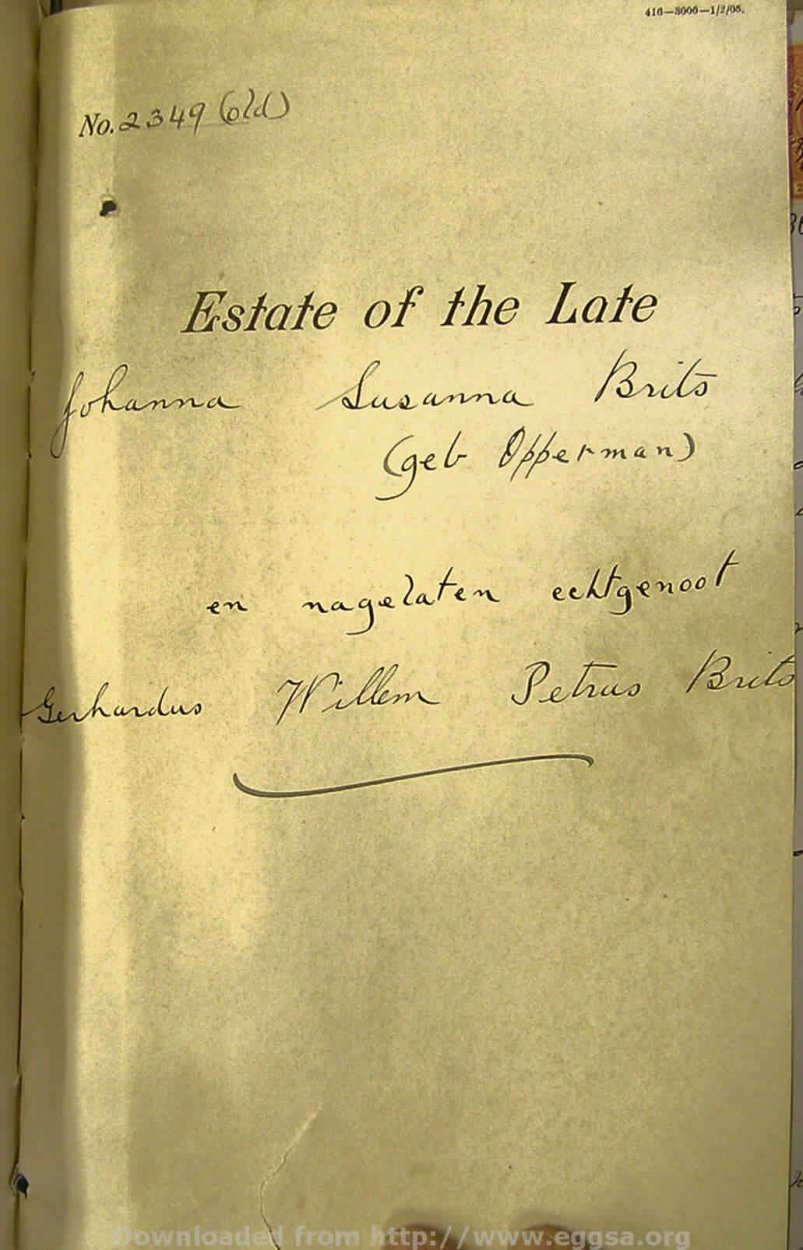 416—3000—1/2/06.
No. 2349 (old)
Estate of the Late
Johanna Susanna Brits
(geb Opperman)
en nagelaten echtgenoot
Gerhardus Willem Petrus Brits
Downloaded from http://www.eggsa.org